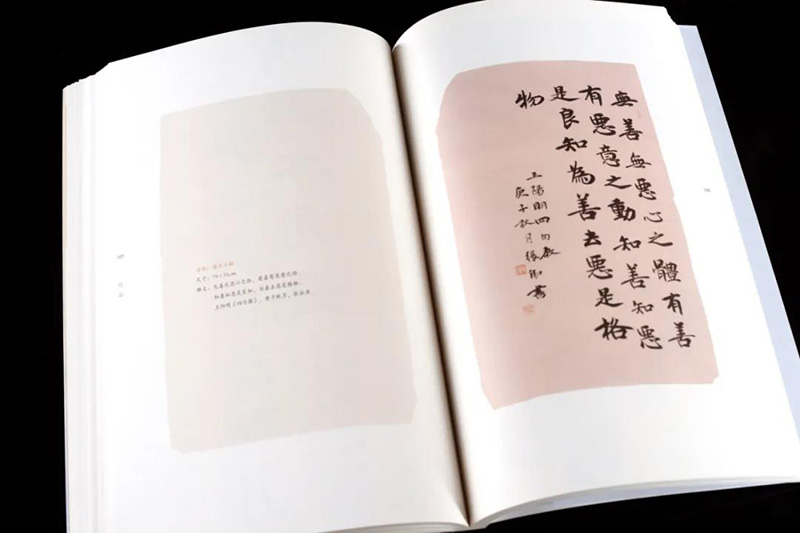 尺寸：
释文：无善无恶心之体，有善有恶意之动。
知善知恶是良知，为善去恶是格物。
王阳明《四句教》，庚子秋月，张
無善無惡心之體有善
有惡意之動知善知惡
是良知為善去惡是格
物
王陽明四句教
庚子秋月張